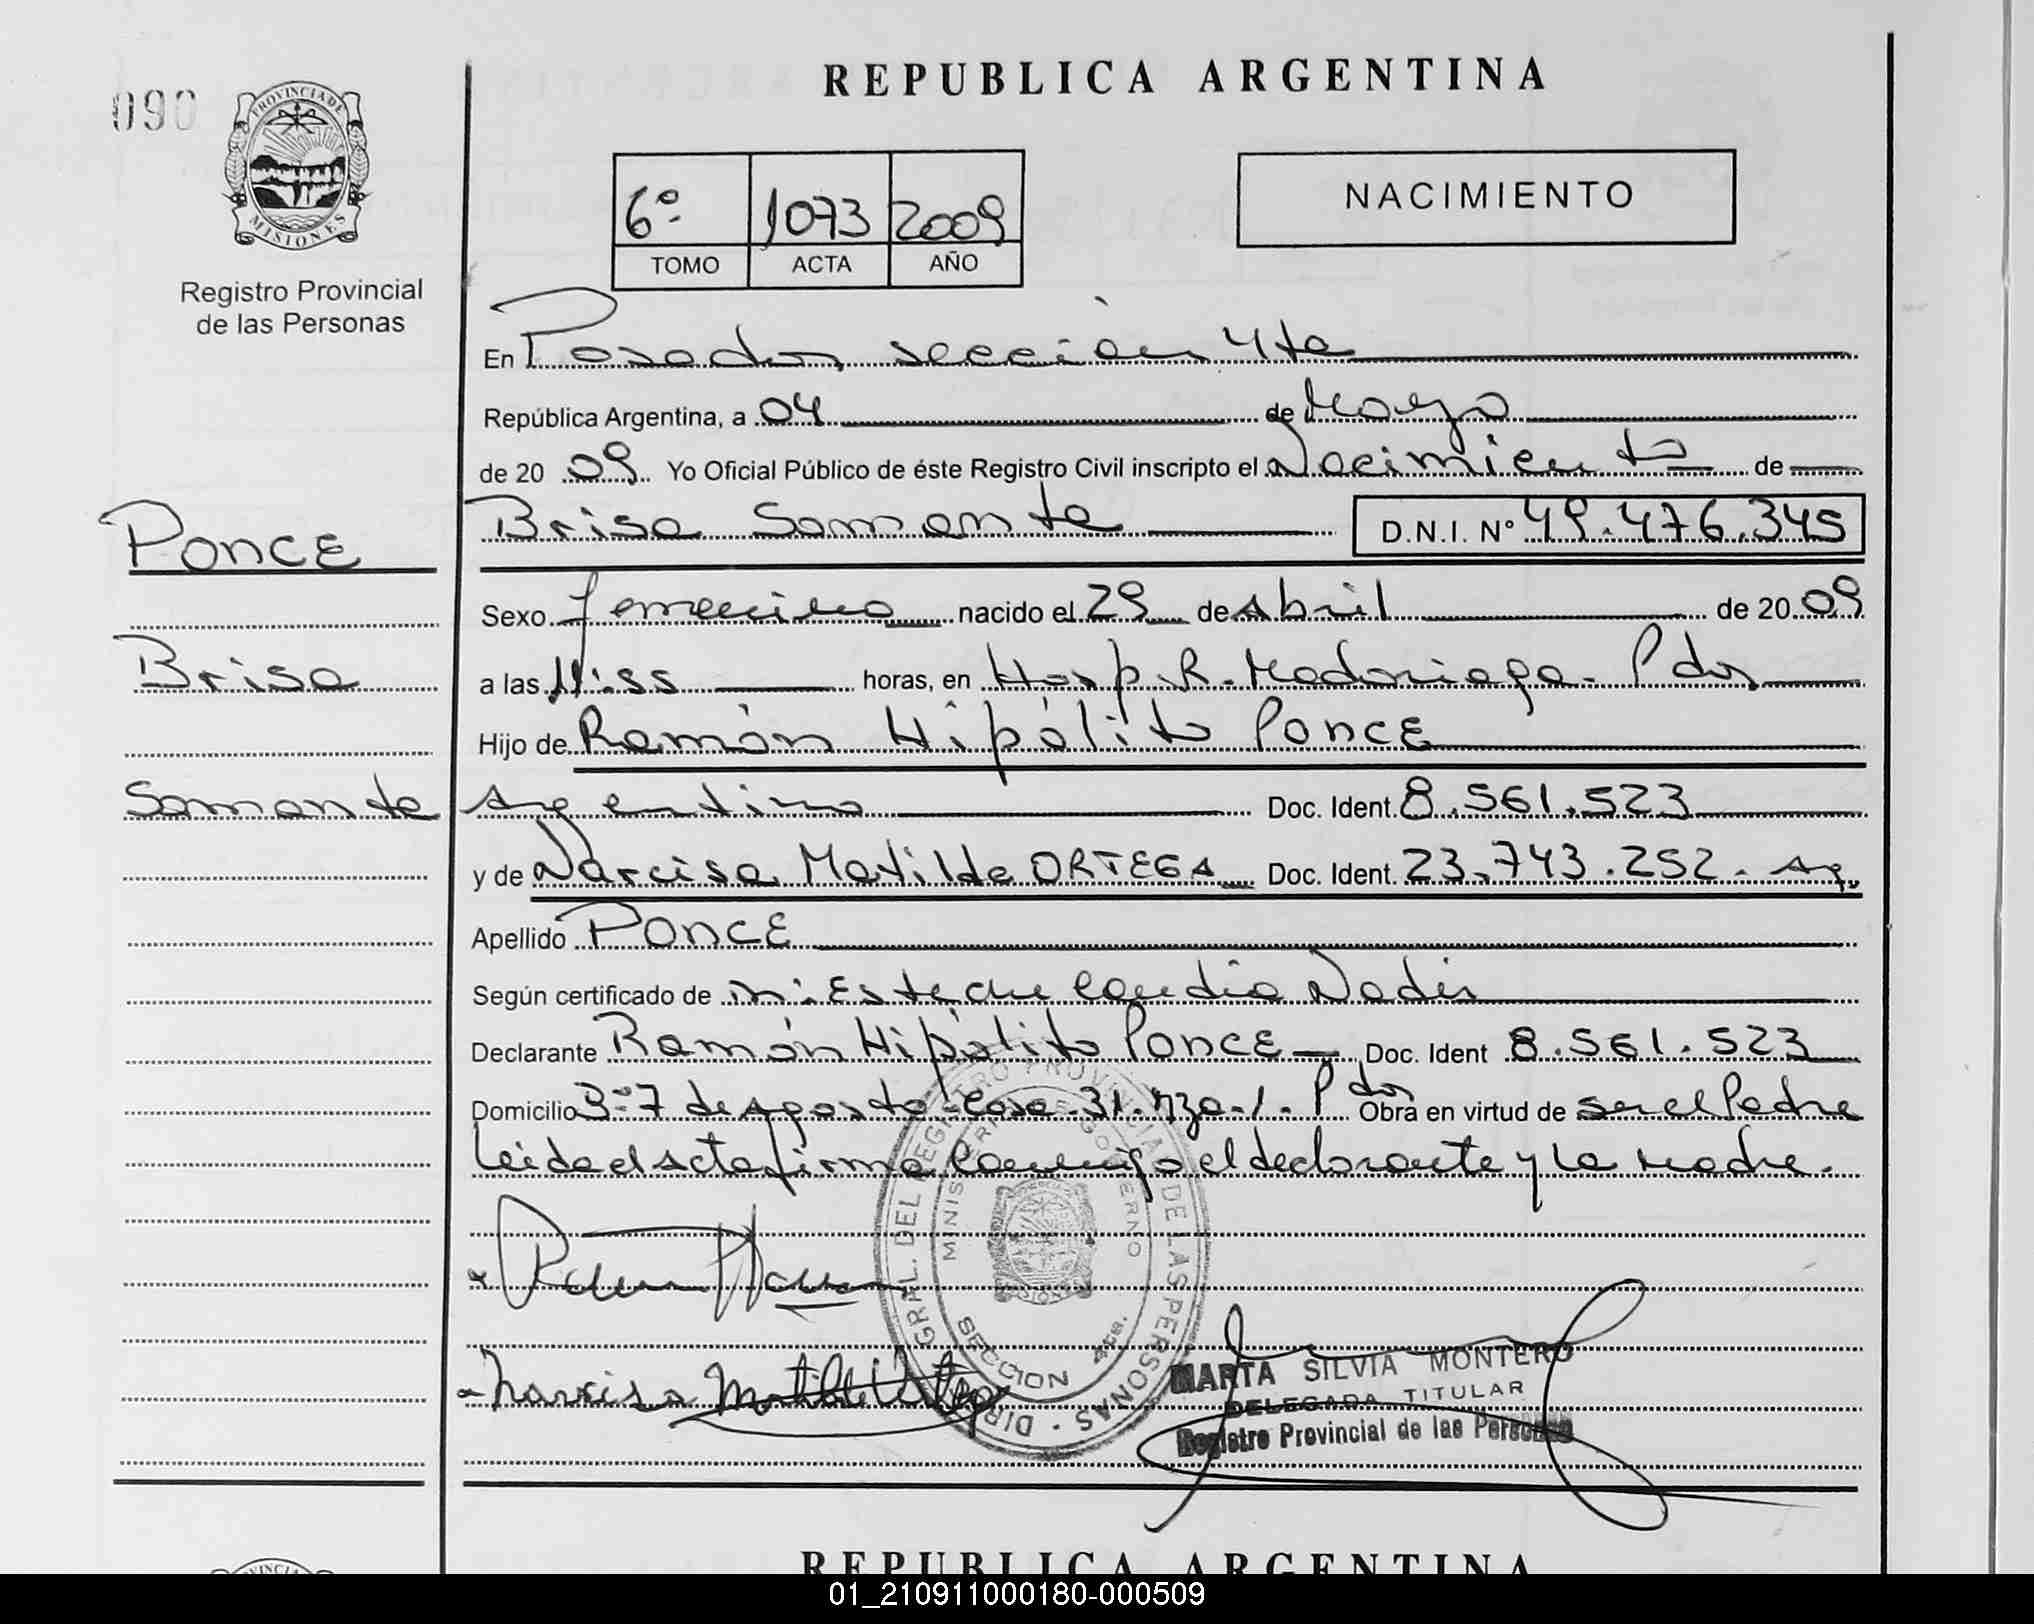 REPUBLICA ARGENTINA
090
PROVINCIA DE
MISIONES
Registro Provincial
de las Personas
6º 1073 2009
TOMO ACTA AÑO
NACIMIENTO
En Posadas, sección 4ta
República Argentina, a 04 de Mayo
de 20 09 Yo Oficial Público de éste Registro Civil inscripto el Nacimiento de
Brisa Samanta D.N.I. Nº 49.476.345
PONCE
Brisa
Samanta
Sexo femenino nacido el 29 de Abril de 20 09
a las 11:55 horas, en Hosp. R. Madariaga. Pdas
Hijo de Ramón Hipólito PONCE
Argentino Doc. Ident. 8.561.523
y de Narcisa Matilde ORTEGA Doc. Ident. 23.743.252. Arg.
Apellido PONCE
Según certificado de Claudia
Declarante Ramón Hipólito PONCE Doc. Ident 8.561.523
Domicilio Bº 7 de Agosto Casa 31. Mza. 1. Pdas Obra en virtud de ser el Padre
Leida el acta firma conmigo el declarante y la madre.
DIR. GRAL. DEL REGISTRO PROVINCIAL DE LAS PERSONAS
MINISTERIO DE GOBIERNO
SECCION 4ta.
Narcisa Matilde Ortega
MARTA SILVIA MONTERO
DELEGADA TITULAR
Registro Provincial de las Personas
REPUBLICA ARGENTINA
01_210911000180-000509